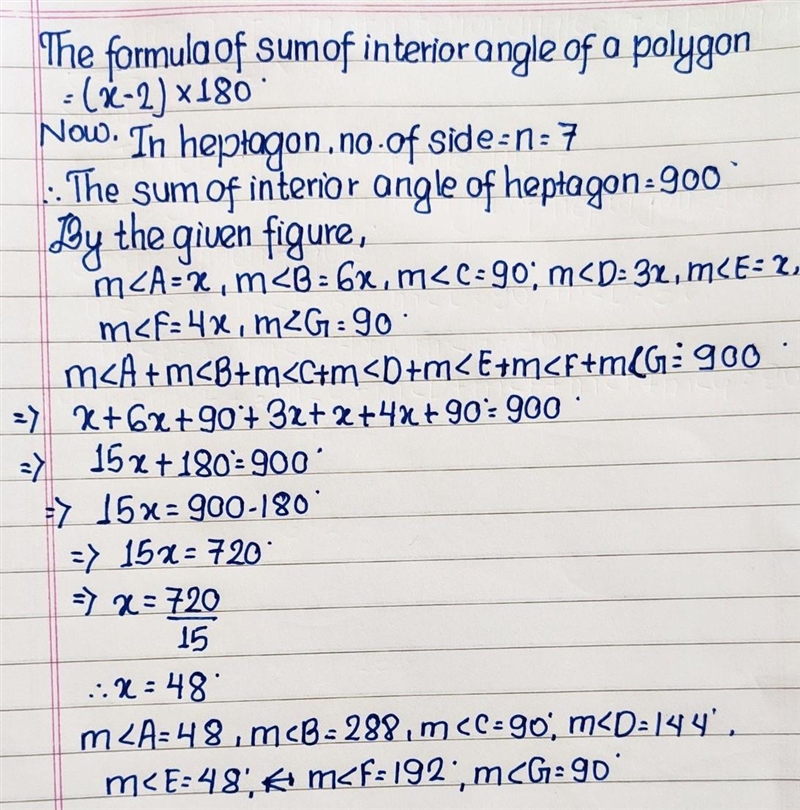 The formula of sum of interior angle of a polygon
= (x-2) × 180°
Now. In heptagon, no. of side = n = 7
∴ The sum of interior angle of heptagon = 900°
By the given figure,
m<A = x, m<B = 6x, m<C = 90°, m<D = 3x, m<E = x,
m<F = 4x, m∠G = 90°
m<A + m<B + m<C + m<D + m<E + m<F + m∠G = 900°
=> x + 6x + 90° + 3x + x + 4x + 90° = 900°
=> 15x + 180° = 900°
=> 15x = 900 - 180°
=> 15x = 720°
=> x = 720
15
∴ x = 48°
m<A = 48, m<B = 288, m<C = 90°, m<D = 144°,
m<E = 48°, m<F = 192°, m<G = 90°